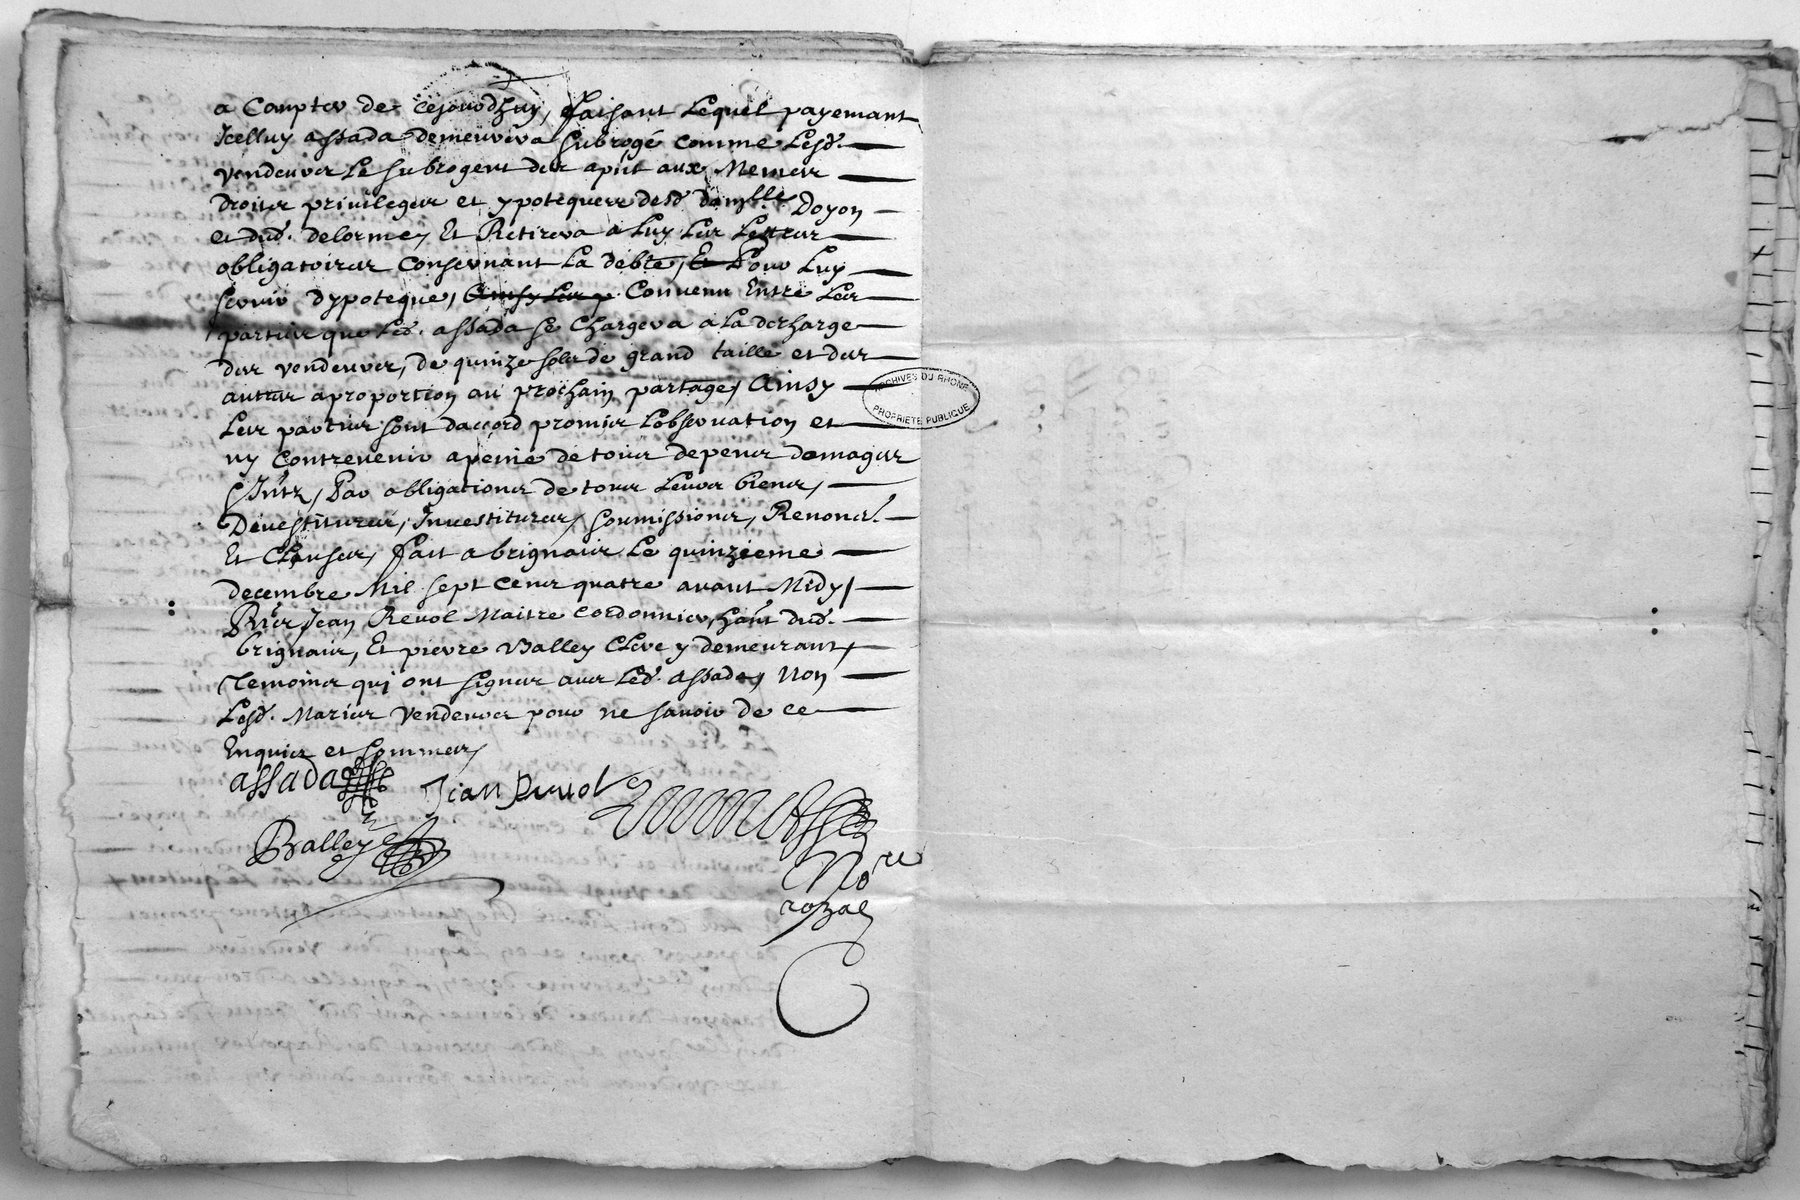 a Compter de cejourdhuy, faisant Lequel payemant
Icelluy assada demeurera subrogé comme Lesd.
vendeurs Le subrogent des apñt aux Memes
droits privileges et ypoteques desd damlle Doyon
et dud. delorme, Et Retirera a Luy Les Lettres
obligatoires Consernant La debte, Et Pour Luy
servir dypoteque, Convenu Entre Les
parties que Led. assada se Chargera a La descharge
des vendeurs, de quinze sols de grand taille et des
autres aproportion au prochain partage, Ainsy
Les parties sont daccord promis Lobservation et
ny Contrevenir apeine de tous depens domages
Intz, Par obligations de tous Leurs biens,
Devestitures, Investitures, soumissions, Renon.
Et Clauses, fait a brignais Le quinzieme
decembre Mil sept cens quatre avant Midy,
Jean Revol Maitre Cordonnier, hãnt dud.
brignais, Et pierre Balley Clerc y demeurant,
Temoins qui ont signes avec Led. assada, Non
Lesd. Maries Vendeurs pour ne savoir de ce
Enquis et sommes,
assada Jean Revol
Balley
Nore
rozal
ARCHIVES DU RHONE
PROPRIETE PUBLIQUE